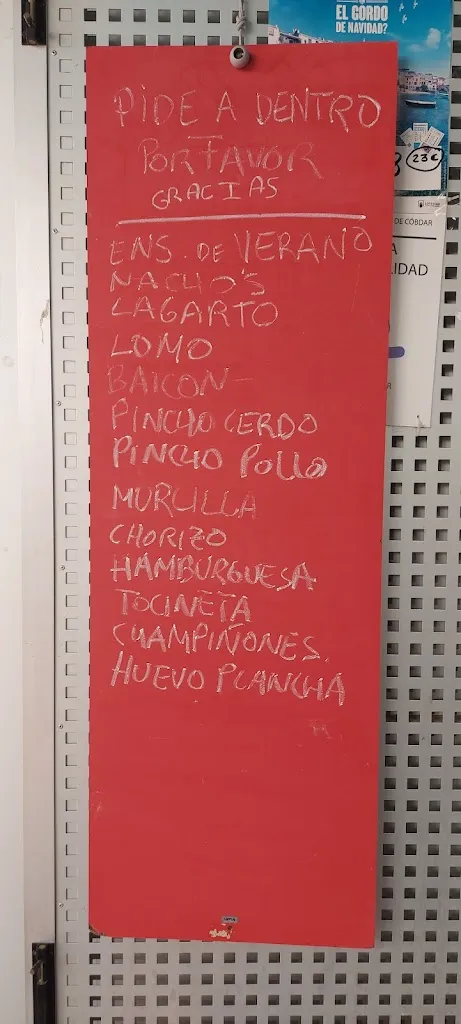 EL GORDO
DE NAVIDAD?
23€
DE CÓBDAR
A
LIDAD
PIDE A DENTRO
POR FAVOR
GRACIAS
ENS. DE VERANO
NACHO'S
LAGARTO
LOMO
BAICON-
PINCHO CERDO
PINCHO POLLO
MURCILLA
CHORIZO
HAMBURGUESA
TOCINETA
CHAMPIÑONES.
HUEVO PLANCHA